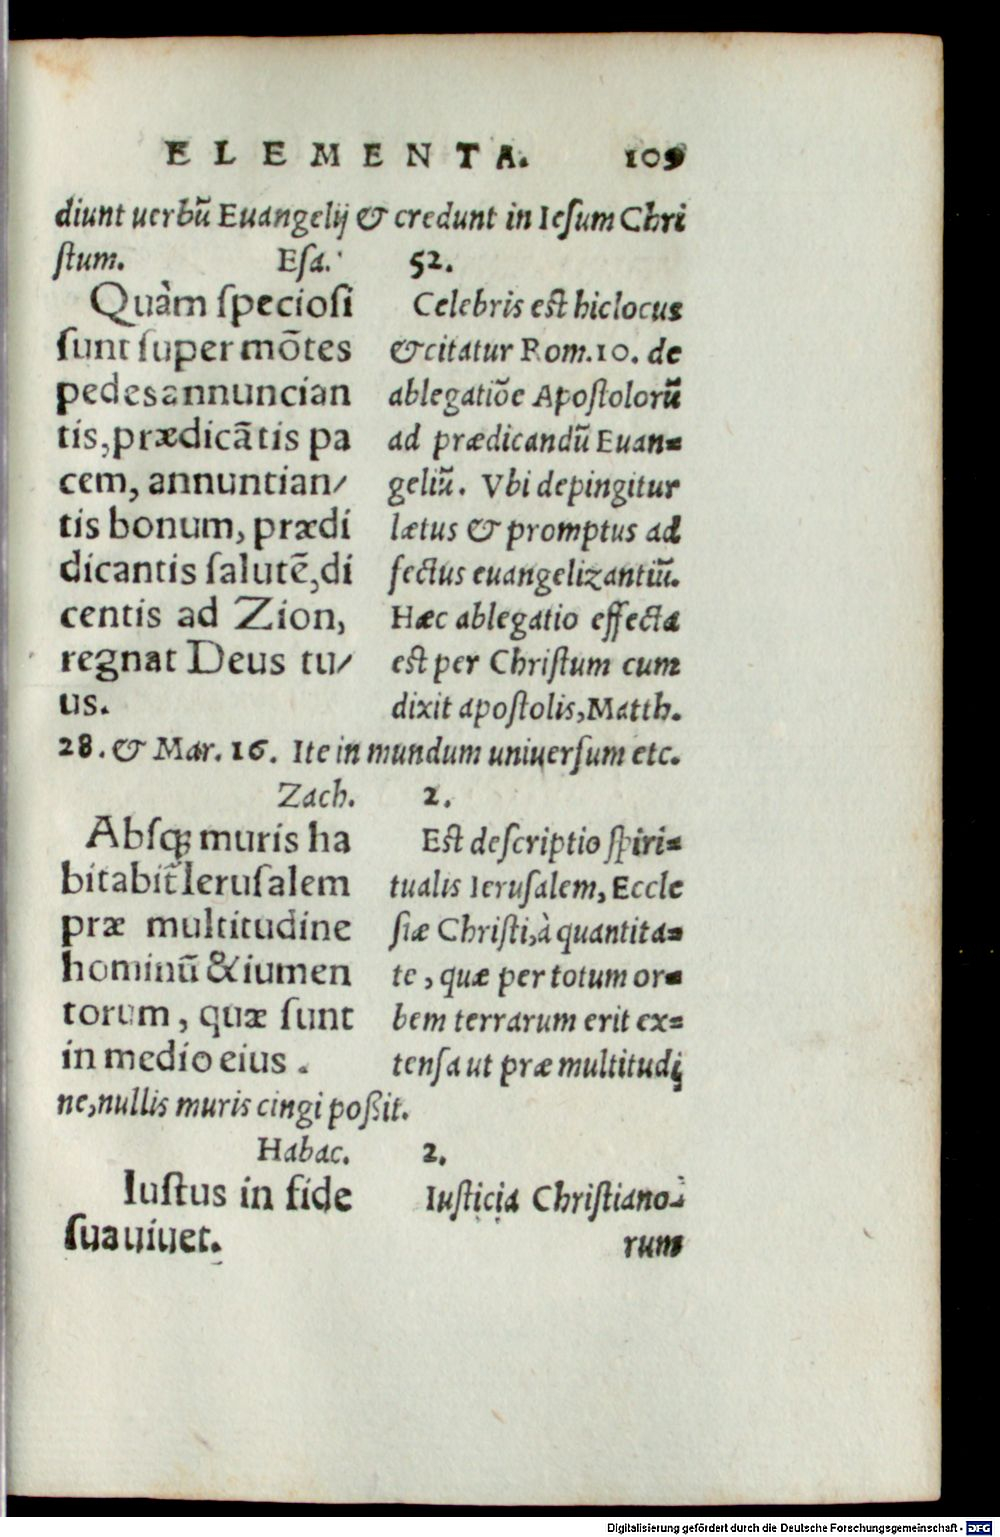 ELEMENTA. 109
diunt uerbũ Euangelij & credunt in Iesum Chri
stum. Esa. 52.
Quàm speciosi
sunt super mõtes
pedes annuncian
tis, prædicãtis pa
cem, annuntian/
tis bonum, prædi
dicantis salutẽ, di
centis ad Zion,
regnat Deus tu/
us.
Celebris est hic locus
& citatur Rom. 10. de
ablegatiõe Apostolorũ
ad prædicandũ Euan=
geliũ. Vbi depingitur
lætus & promptus ad
fectus euangelizantiũ.
Hæc ablegatio effecta
est per Christum cum
dixit apostolis, Matth.
28. & Mar. 16. Ite in mundum uniuersum etc.
Zach. 2.
Absq; muris ha
bitabit̃ Ierusalem
præ multitudine
hominũ & iumen
torum, quæ sunt
in medio eius.
Est descriptio spiri=
tualis Ierusalem, Eccle
siæ Christi, à quantita=
te, quæ per totum or=
bem terrarum erit ex=
tensa ut præ multitudi
ne, nullis muris cingi poßit.
Habac. 2.
Iustus in fide
sua uiuet.
Iusticia Christiano-
rum
Digitalisierung gefördert durch die Deutsche Forschungsgemeinschaft - DFG